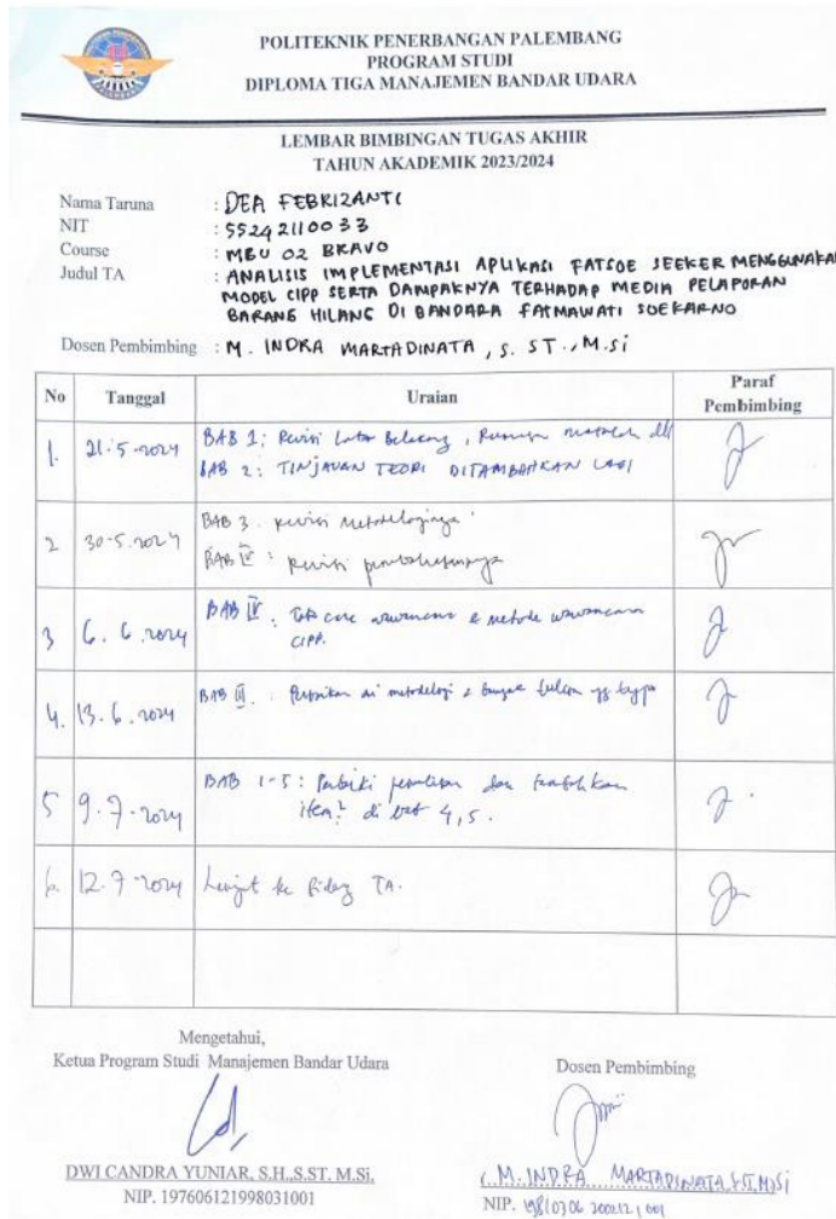 POLITEKNIK PENERBANGAN PALEMBANG
PROGRAM STUDI
DIPLOMA TIGA MANAJEMEN BANDAR UDARA
LEMBAR BIMBINGAN TUGAS AKHIR
TAHUN AKADEMIK 2023/2024
Nama Taruna : DEA FEBRIZANTI
NIT : 55242110033
Course : MBU 02 BRAVO
Judul TA : ANALISIS IMPLEMENTASI APLIKASI FATSOE SEEKER MENGGUNAKAN
MODEL CIPP SERTA DAMPAKNYA TERHADAP MEDIA PELAPORAN
BARANG HILANG DI BANDARA FATMAWATI SOEKARNO
Dosen Pembimbing : M. INDRA MARTADINATA, S. ST., M.Si
No Tanggal Uraian Paraf
Pembimbing
1. 21-5-2024 BAB 1: Revisi Latar Belakang, Rumusan masalah dll
BAB 2: TINJAUAN TEORI DITAMBAHKAN LAGI
2 30-5-2024 BAB 3. revisi metodologinya
BAB IV : revisi pembahasannya
3 6.6.2024 BAB IV. cara wawancara & metode wawancara
CIPP.
4. 13.6.2024 BAB III. metodologi & banyak tulisan yg typo
5 9.7-2024 BAB 1-5: Perbaiki penulisan dan tambahkan
item2 di bab 4,5.
6. 12.7-2024 Lanjut ke Sidang TA.
Mengetahui,
Ketua Program Studi Manajemen Bandar Udara
Dosen Pembimbing
DWI CANDRA YUNIAR, S.H.,S.ST. M.Si.
NIP. 197606121998031001
(M. INDRA MARTADINATA, S.ST, M.Si
NIP.